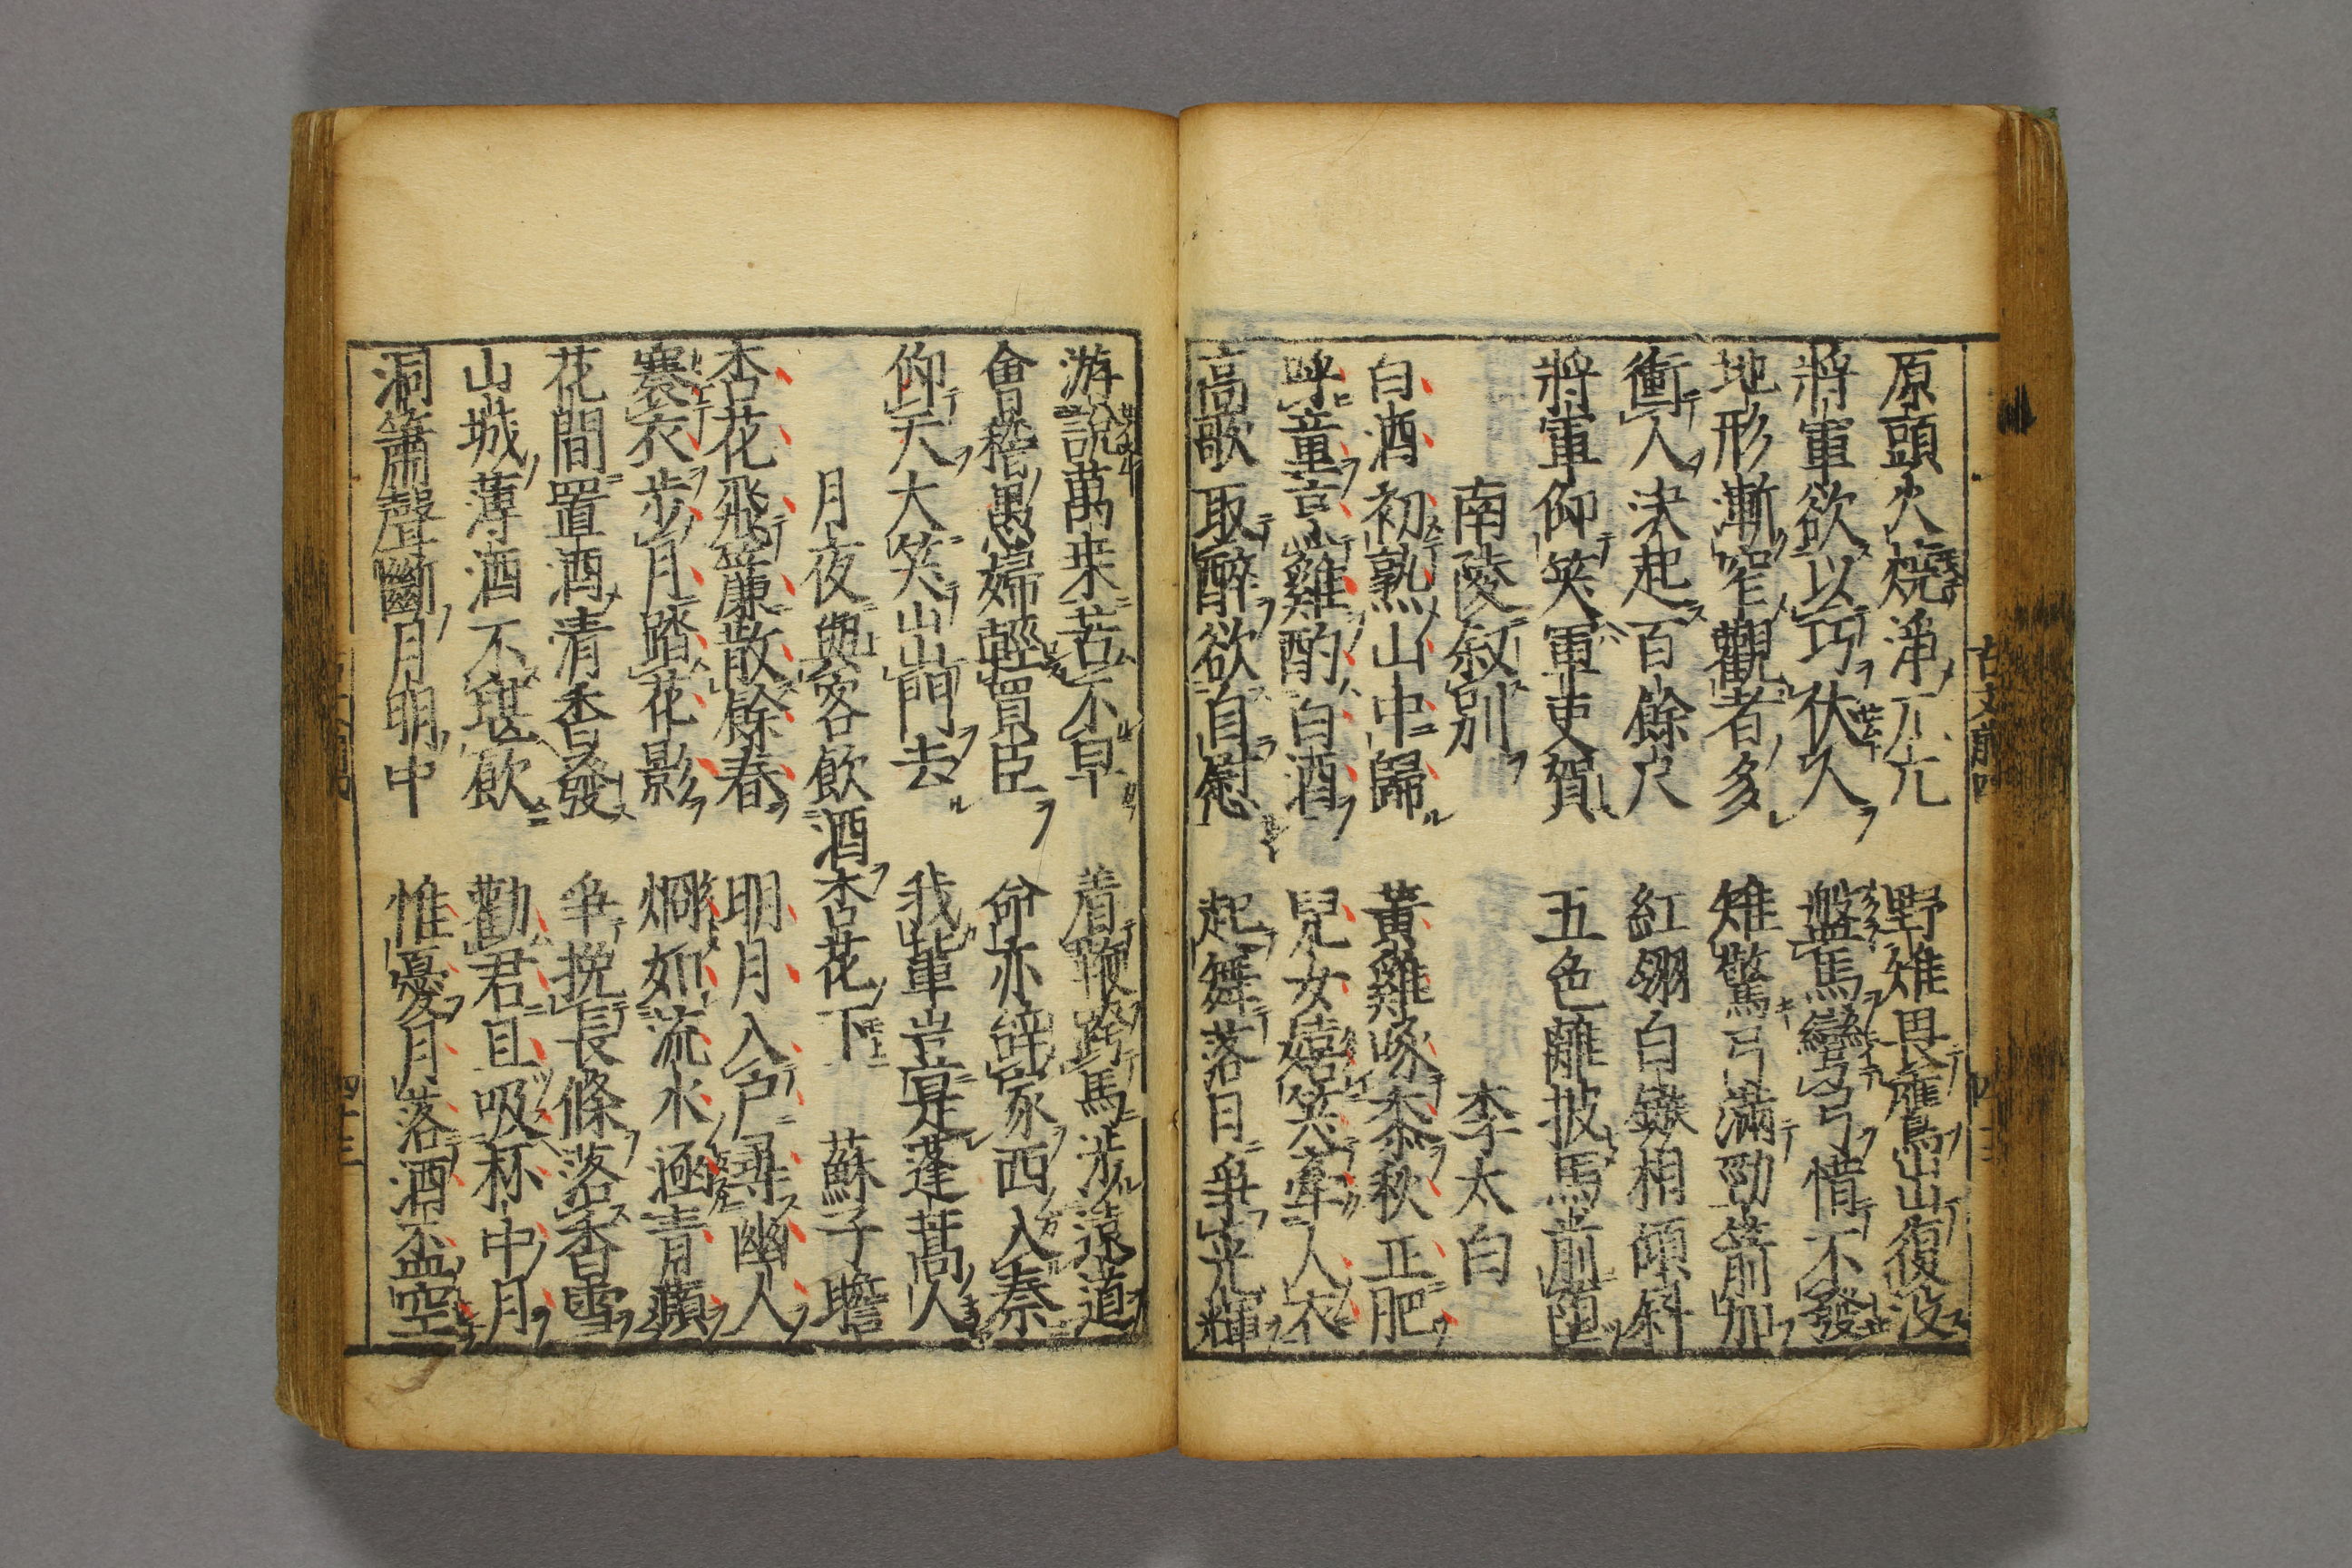 原頭火燒淨兀兀 野雉畏鷹出復沒
將軍欲以巧伏人 盤馬彎弓惜不發
地形漸窄觀者多 雉驚弓滿勁箭加
衝人决起百餘尺 紅翎白鏃相傾斜
將軍仰笑軍吏賀 五色離披馬前墮
南陵叙別 李太白
白酒初熟山中歸 黃雞啄黍秋正肥
呼童烹雞酌白酒 兒女嬉笑牽人衣
高歌取醉欲自慰 起舞落日爭光輝
游說萬乘苦不早 着鞭跨馬涉遠道
會稽愚婦輕買臣 余亦辭家西入秦
仰天大笑出門去 我輩豈是蓬蒿人
月夜與客飲酒杏花下 蘇子瞻
杏花飛簾散餘春 明月入户尋幽人
褰衣步月踏花影 烱如流水涵青蘋
花間置酒清香發 爭挽長條落香雪
山城薄酒不堪飲 勸君且吸杯中月
洞簫聲斷月明中 惟憂月落酒盃空
古文前
四十三